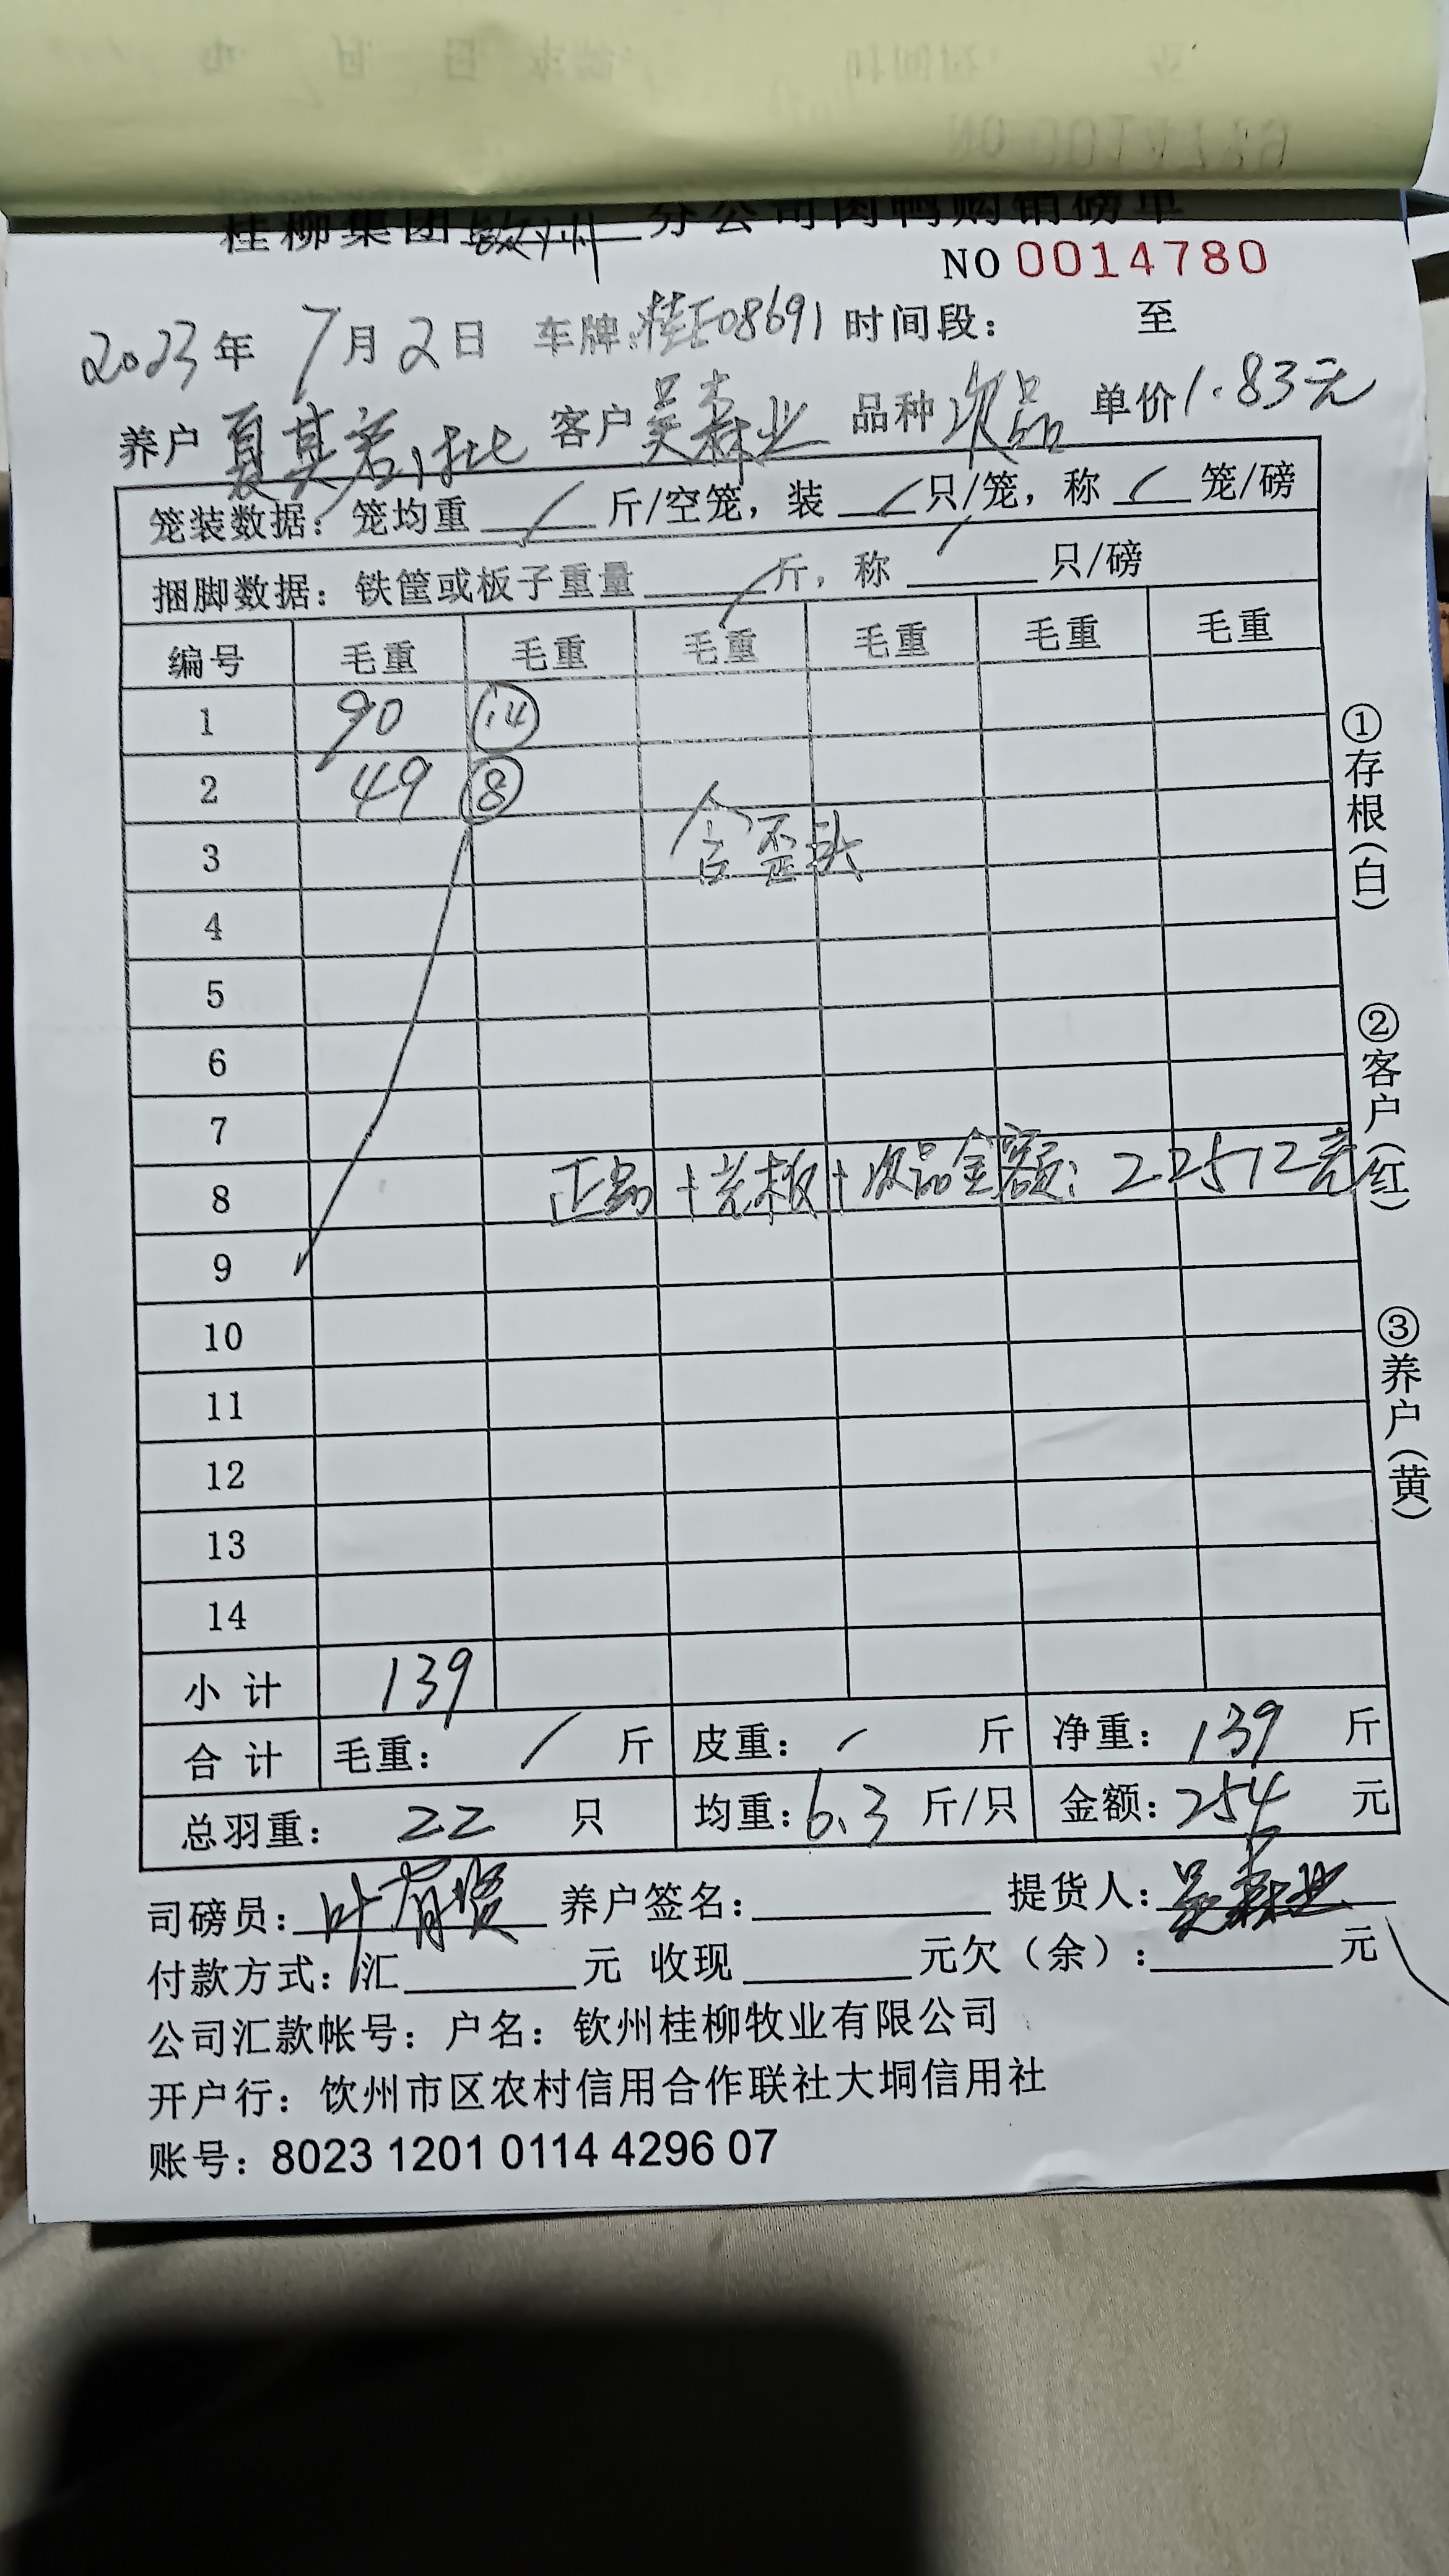 桂柳集团钦州分公司肉鸭购销磅单
NO 0014780
2023年 7月2日 车牌:桂E08691 时间段: 至
养户 夏其君1批 客户 吴森业 品种 次品 单价 1.83元
笼装数据: 笼均重 / 斤/空笼, 装 / 只/笼, 称 / 笼/磅
捆脚数据: 铁筐或板子重量 / 斤, 称 / 只/磅
编号 毛重 毛重 毛重 毛重 毛重 毛重
1 90 ⑭
2 49 ⑧
3 含歪头
4
5
6
7
8 正品+光板+次品金额: 22512元
9
10
11
12
13
14
小计 139
合计 毛重: / 斤 皮重: / 斤 净重: 139 斤
总羽重: 22 只 均重: 6.3 斤/只 金额: 254 元
司磅员: 叶有贤 养户签名: 提货人: 吴森业
付款方式: 汇 元 收现 元欠(余): 元
公司汇款帐号: 户名: 钦州桂柳牧业有限公司
开户行: 钦州市区农村信用合作联社大垌信用社
账号: 8023 1201 0114 4296 07
①存根(白)
②客户(红)
③养户(黄)